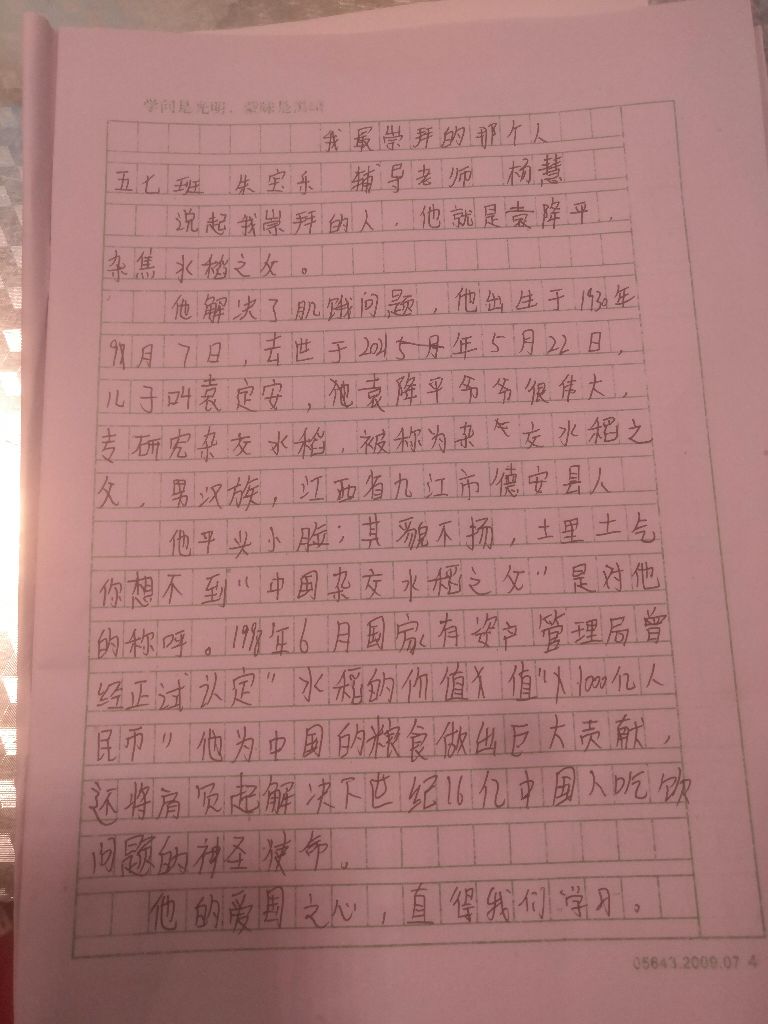 学问是光明，蒙昧是黑暗
我最崇拜的那个人
五七班 朱宝乐 辅导老师 杨慧
说起我崇拜的人，他就是袁降平，
杂焦水稻之父。
他解决了肌饿问题，他出生于1930年
9月7日，去世于2021年5月22日，
儿子叫袁定安，袁降平爷爷很伟大，
专研究杂交水稻，被称为杂交水稻之
父，男汉族，江西省九江市德安县人
他平头小脸；其貌不扬，土里土气
你想不到"中国杂交水稻之父"是对他
的称呼。1998年6月国家有资产管理局曾
经正试认定"水稻的价值 值" 1000亿人
民币"他为中国的粮食做出巨大贡献，
还将肩负起解决下世纪16亿中国人吃饮
问题的神圣使命。
他的爱国之心，直得我们学习。
05643.2009.07 4